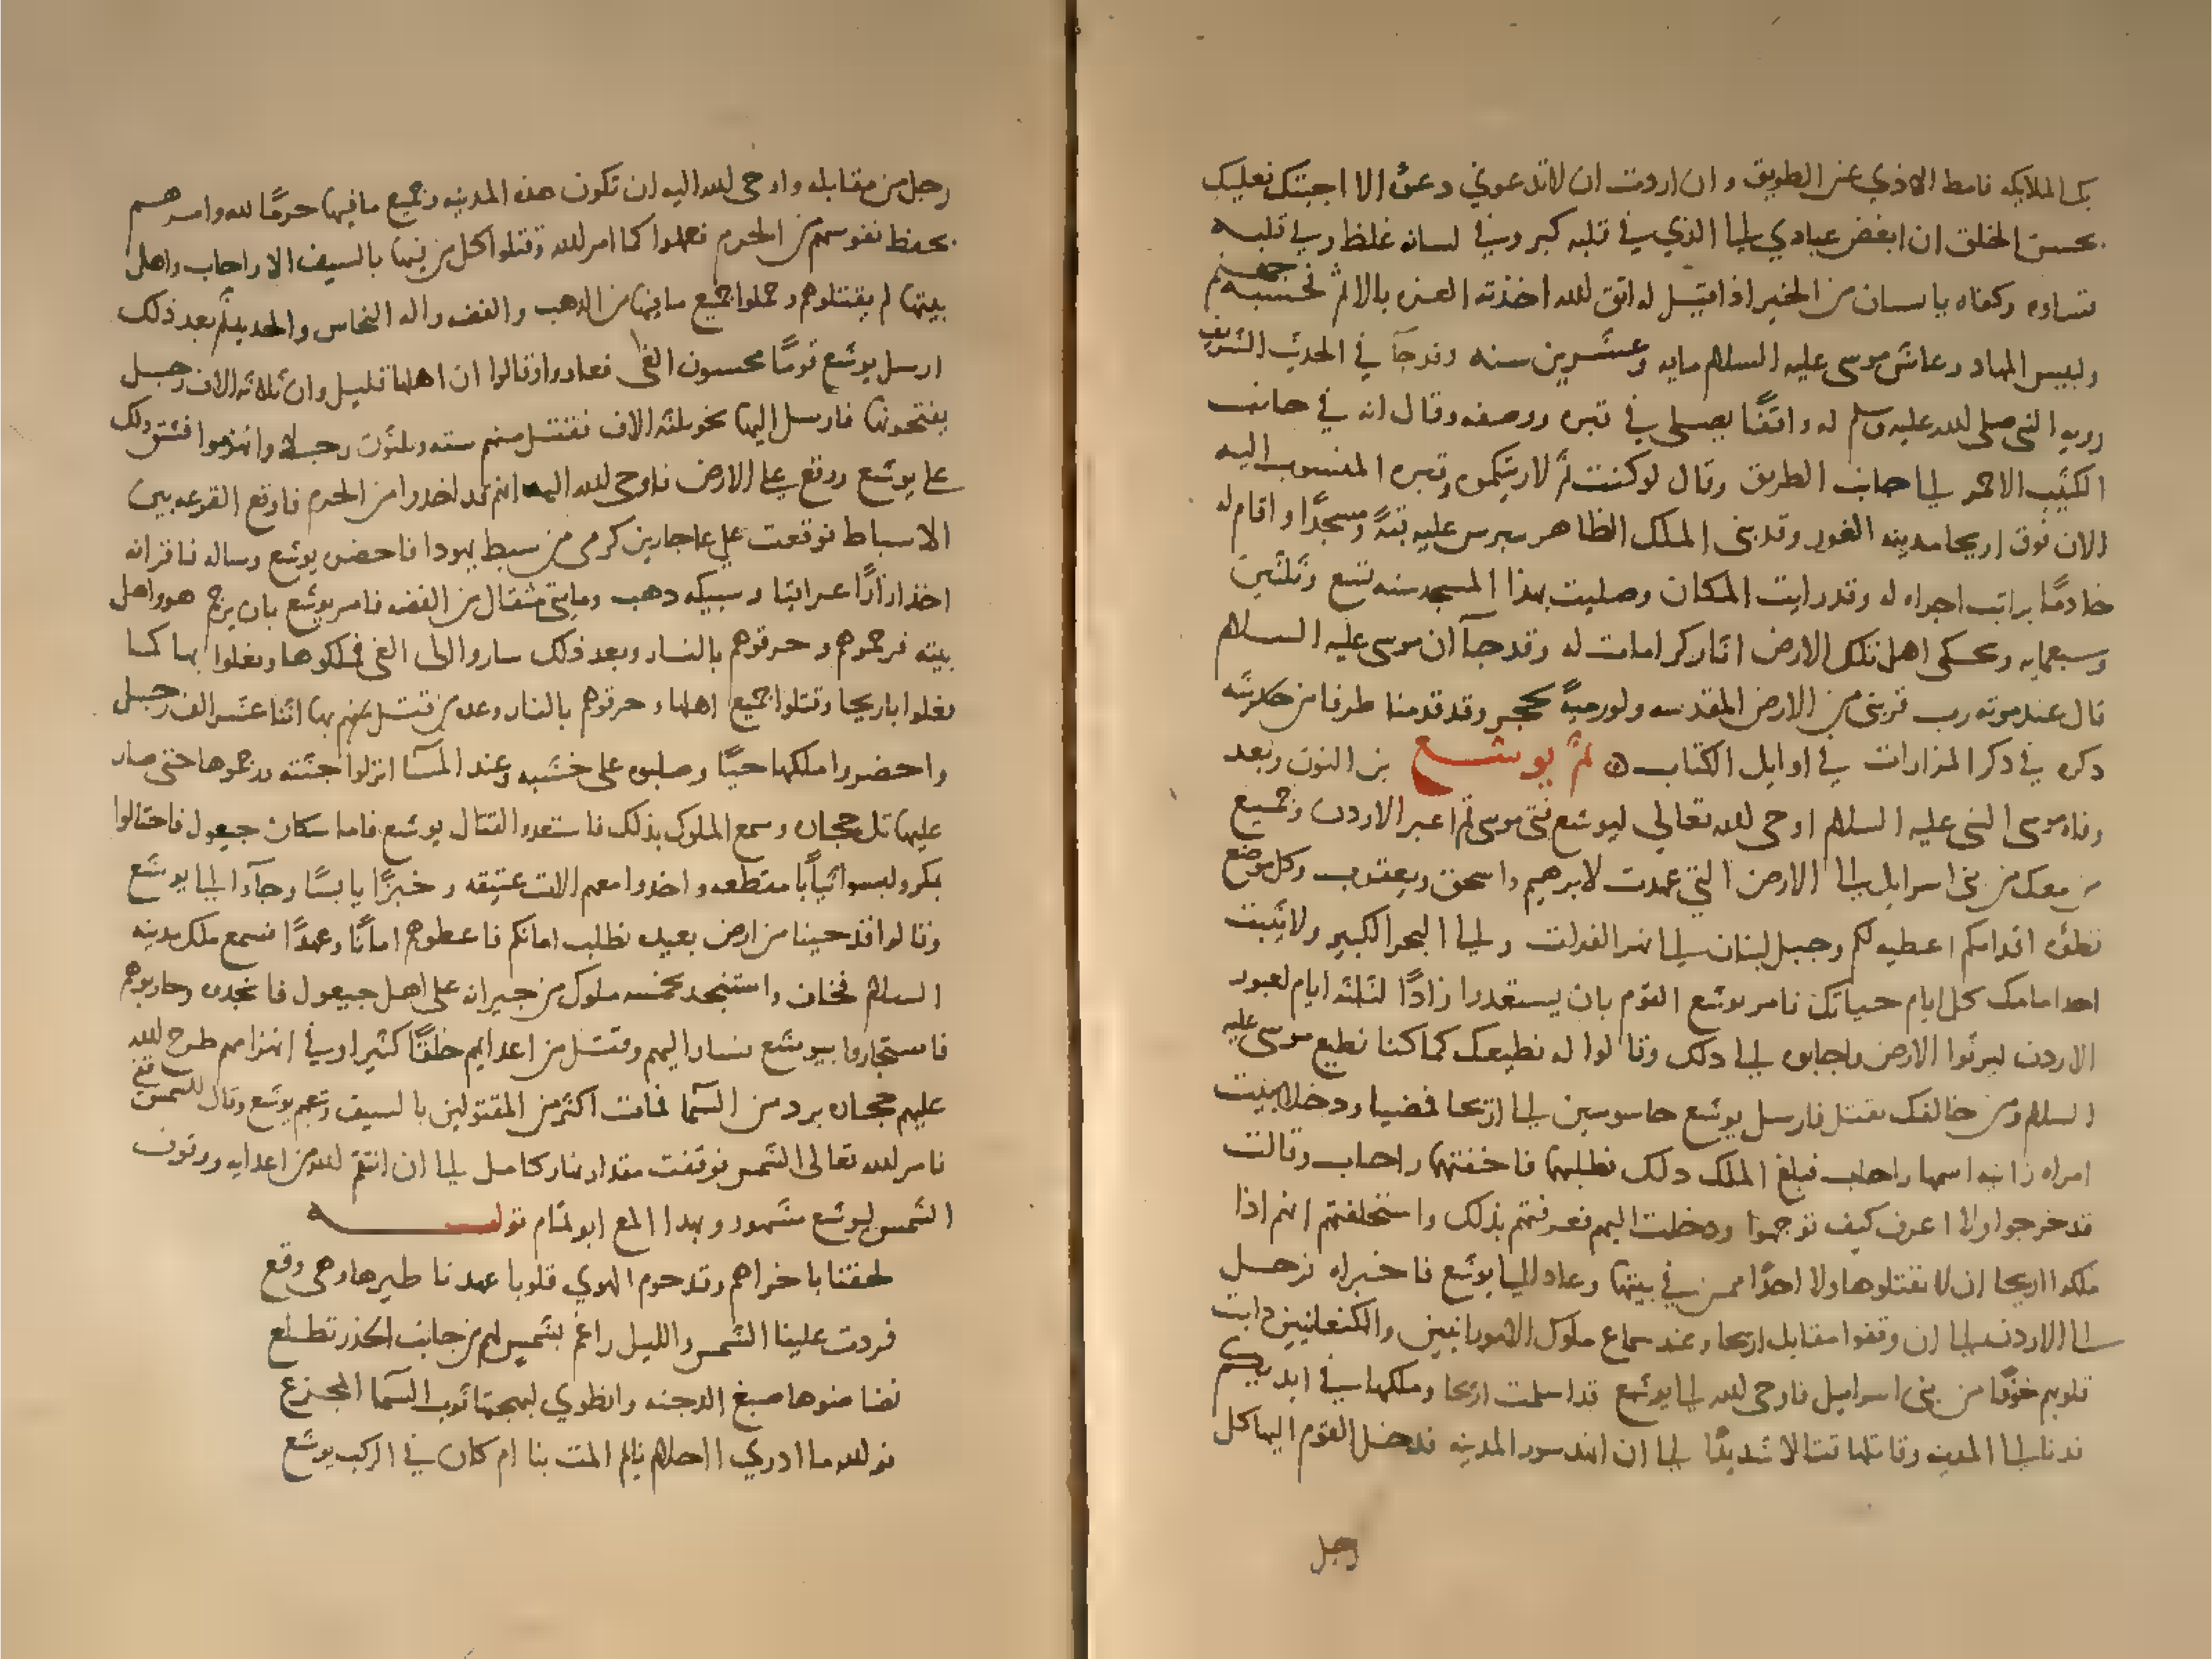 بك الملايكه فامط الاذي عن الطريق وان اردت ان لا تدعوني دعوة الا اجبتك فعليك
بحسن الخلق ان ابغض عبادي الي الذي في قلبه كبر وفي لسانه غلظ وفي قلبه
قساوه وكفاه بانسان من الخير اذا قيل له اتق الله اخذته العزه بالاثم فحسبه جهنم
ولبيس المهاد وعاش موسى عليه السلام مايه وعشرين سنه وقد جآ في الحديث الشريف
رويه النبي صلى الله عليه وسلم له واقفًا يصلي في قبره ووصفه وقال انه في جانب
الكثيب الاحمر الي جانب الطريق وقال لو كنت ثَم لاريتكموه وقبره المنسوب اليه
الان فوق اريحا مدينه الغور وقد بنى الملك الظاهر بيبرس عليه قبةً ومسجدًا واقام له
خادمًا براتب اجراه له وقد رايت المكان وصليت بهذا المسجد سنه تسع وثلثين
وسبعمايه وحكى اهل تلك الارض اثار كرامات له وقد جآ ان موسى عليه السلام
قال عند موته رب قربني من الارض المقدسه ولو رميةً بحجر وقد قدمنا طرفا من
ذكره في ذكر المزارات في اوايل الكتاب ثم يوشع بن النون وبعد
وفاه موسى النبي عليه السلام اوحى الله تعالي ليوشع فتى موسى قم اعبر الاردن وجميع
من معك من بني اسرايل الى الارض التي عهدت لابرهيم واسحق ويعقوب وكل موضع
تطؤه اقدامكم اعطيه لكم وجبل لبنان الى نهر الفرات والي البحر الكبير ولا يثبت
احد امامك كل ايام حياتك فامر يوشع القوم بان يستعدوا زادًا لثلثه ايام لعبور
الاردن ليرثوا الارض واجابوه الي ذلك وقالوا له نطيعك كما كنا نطيع موسى عليه
السلام ومن خالفك يقتل فارسل يوشع جاسوسين الي اريحا فمضيا ودخلا بيت
امراه زانيه اسمها راحاب فبلغ الملك ذلك فطلبهما فاخفتهما راحاب وقالت
قد خرجوا ولا اعرف كيف توجهوا ودخلت اليهم فعرفتهم بذلك واستحلفتهم انهم اذا
ملكوا اريحا ان لا يقتلوها ولا احدًا ممن في بيتها وعادا الي يوشع فاخبراه فرحل
الى الاردن الي ان وقفوا مقابل اريحا وعند سماع ملوك الامورانيين والكنعانيين ذابت
قلوبهم خوفًا من بني اسراييل فاوحى الله الي يوشع قد اسلمت اريحا وملكها في ايديكم
فدنا الي المدينه وقاتلها قتالا شديدًا الي ان انهد سور المدينه فدخل القوم اليها كل
رجل
رجل من مقابله واوحى الله اليه ان تكون هذه المدينه وجميع ما فيها حرمًا لله وامرهم
بحفظ نفوسهم من الحرم ففعلوا كما امر الله وقتلوا كل من فيها بالسيف الا راحاب واهل
بيتها لم يقتلوهم وحملوا جميع ما فيها من الذهب والفضه واله النحاس والحديد ثم بعد ذلك
ارسل يوشع قومًا يحسسون الغي فعادوا وقالوا ان اهلها قليل وان ثلاثه الاف رجل
يفتحونها فارسل اليها نحو ثلثه الاف فقتل منهم سته وثلثون رجلا وانهزموا فشق ذلك
على يوشع ووقع على الارض فاوحى الله اليه انهم قد اخذوا من الحرم فاوقع القرعه بين
الاسباط فوقعت على عاجار بن كرمى من سبط يهودا فاحضره يوشع وساله فاقر انه
اخذ ازارًا عراقيا وسبيكه ذهب ومايتي مثقال من الفضه فامر يوشع بان يرجم هو واهل
بيته فرجموهم وحرقوهم بالنار وبعد ذلك ساروا الى الغي فملكوها وفعلوا بها كما
فعلوا باريحا وقتلوا جميع اهلها وحرقوهم بالنار وعده من قتل منهم بها اثنا عشر الف رجل
واحضروا ملكها حيًا وصلبوه على خشبه وعند المسآ انزلوا جثته ورجموها حتى صار
عليها تل حجاره وسمع الملوك بذلك فاستعدوا لقتال يوشع فاما سكان جبعول فاحتالوا
بمكر ولبسوا ثيابًا مقطعه واخذوا معهم الات عتيقه وخبزًا يابسًا وجآوا الي يوشع
وقالوا قد جينا من ارض بعيده نطلب امانكم فاعطوهم امانًا وعهدًا فسمع ملك مدينه
السلام فخاف واستنجد بخمسه ملوك من جيرانه على اهل جبعول فانجدوه وحاربوهم
فاستجاروا بيوشع فسار اليهم وقتل من اعدايهم خلقًا كثيرا وفي انهزامهم طرح الله
عليهم حجاره برد من السمآ فمات اكثر من المقتولين بالسيف وتبعهم يوشع وقال للشمس قفي
فامر الله تعالى الشمس فوقفت مقدار نهار كامل الي ان انتقم الله من اعدايه ووقوف
الشمس ليوشع مشهور وبهذا المع ابو تمام بقوله
لحقنا باخراهم وقد حوم الهوي قلوبا عهدنا طيرها وهي وقع
فردت علينا الشمس والليل راغم بشمس لهم من جانب الخدر تطلع
نضا ضوها صبغ الدجنه وانطوي لبهجتها ثوب السمآ المجزع
فوالله ما ادري ااحلام نايم المت بنا ام كان في الركب يوشع